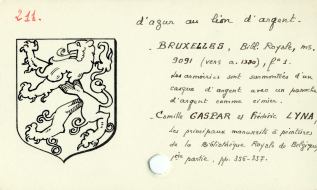 211.
d'azur au lion d'argent.
- BRUXELLES, Bibl. Royale, ms.
9091 (vers a. 1330), f° 1.
Les armoiries sont surmontées d'un
casque d'argent avec un panache
d'argent comme cimier.
- Camille GASPAR et Frédéric LYNA,
Les principaux manuscrits à peintures
de la Bibliothèque Royale de Belgique,
1ère partie, pp. 336-337.